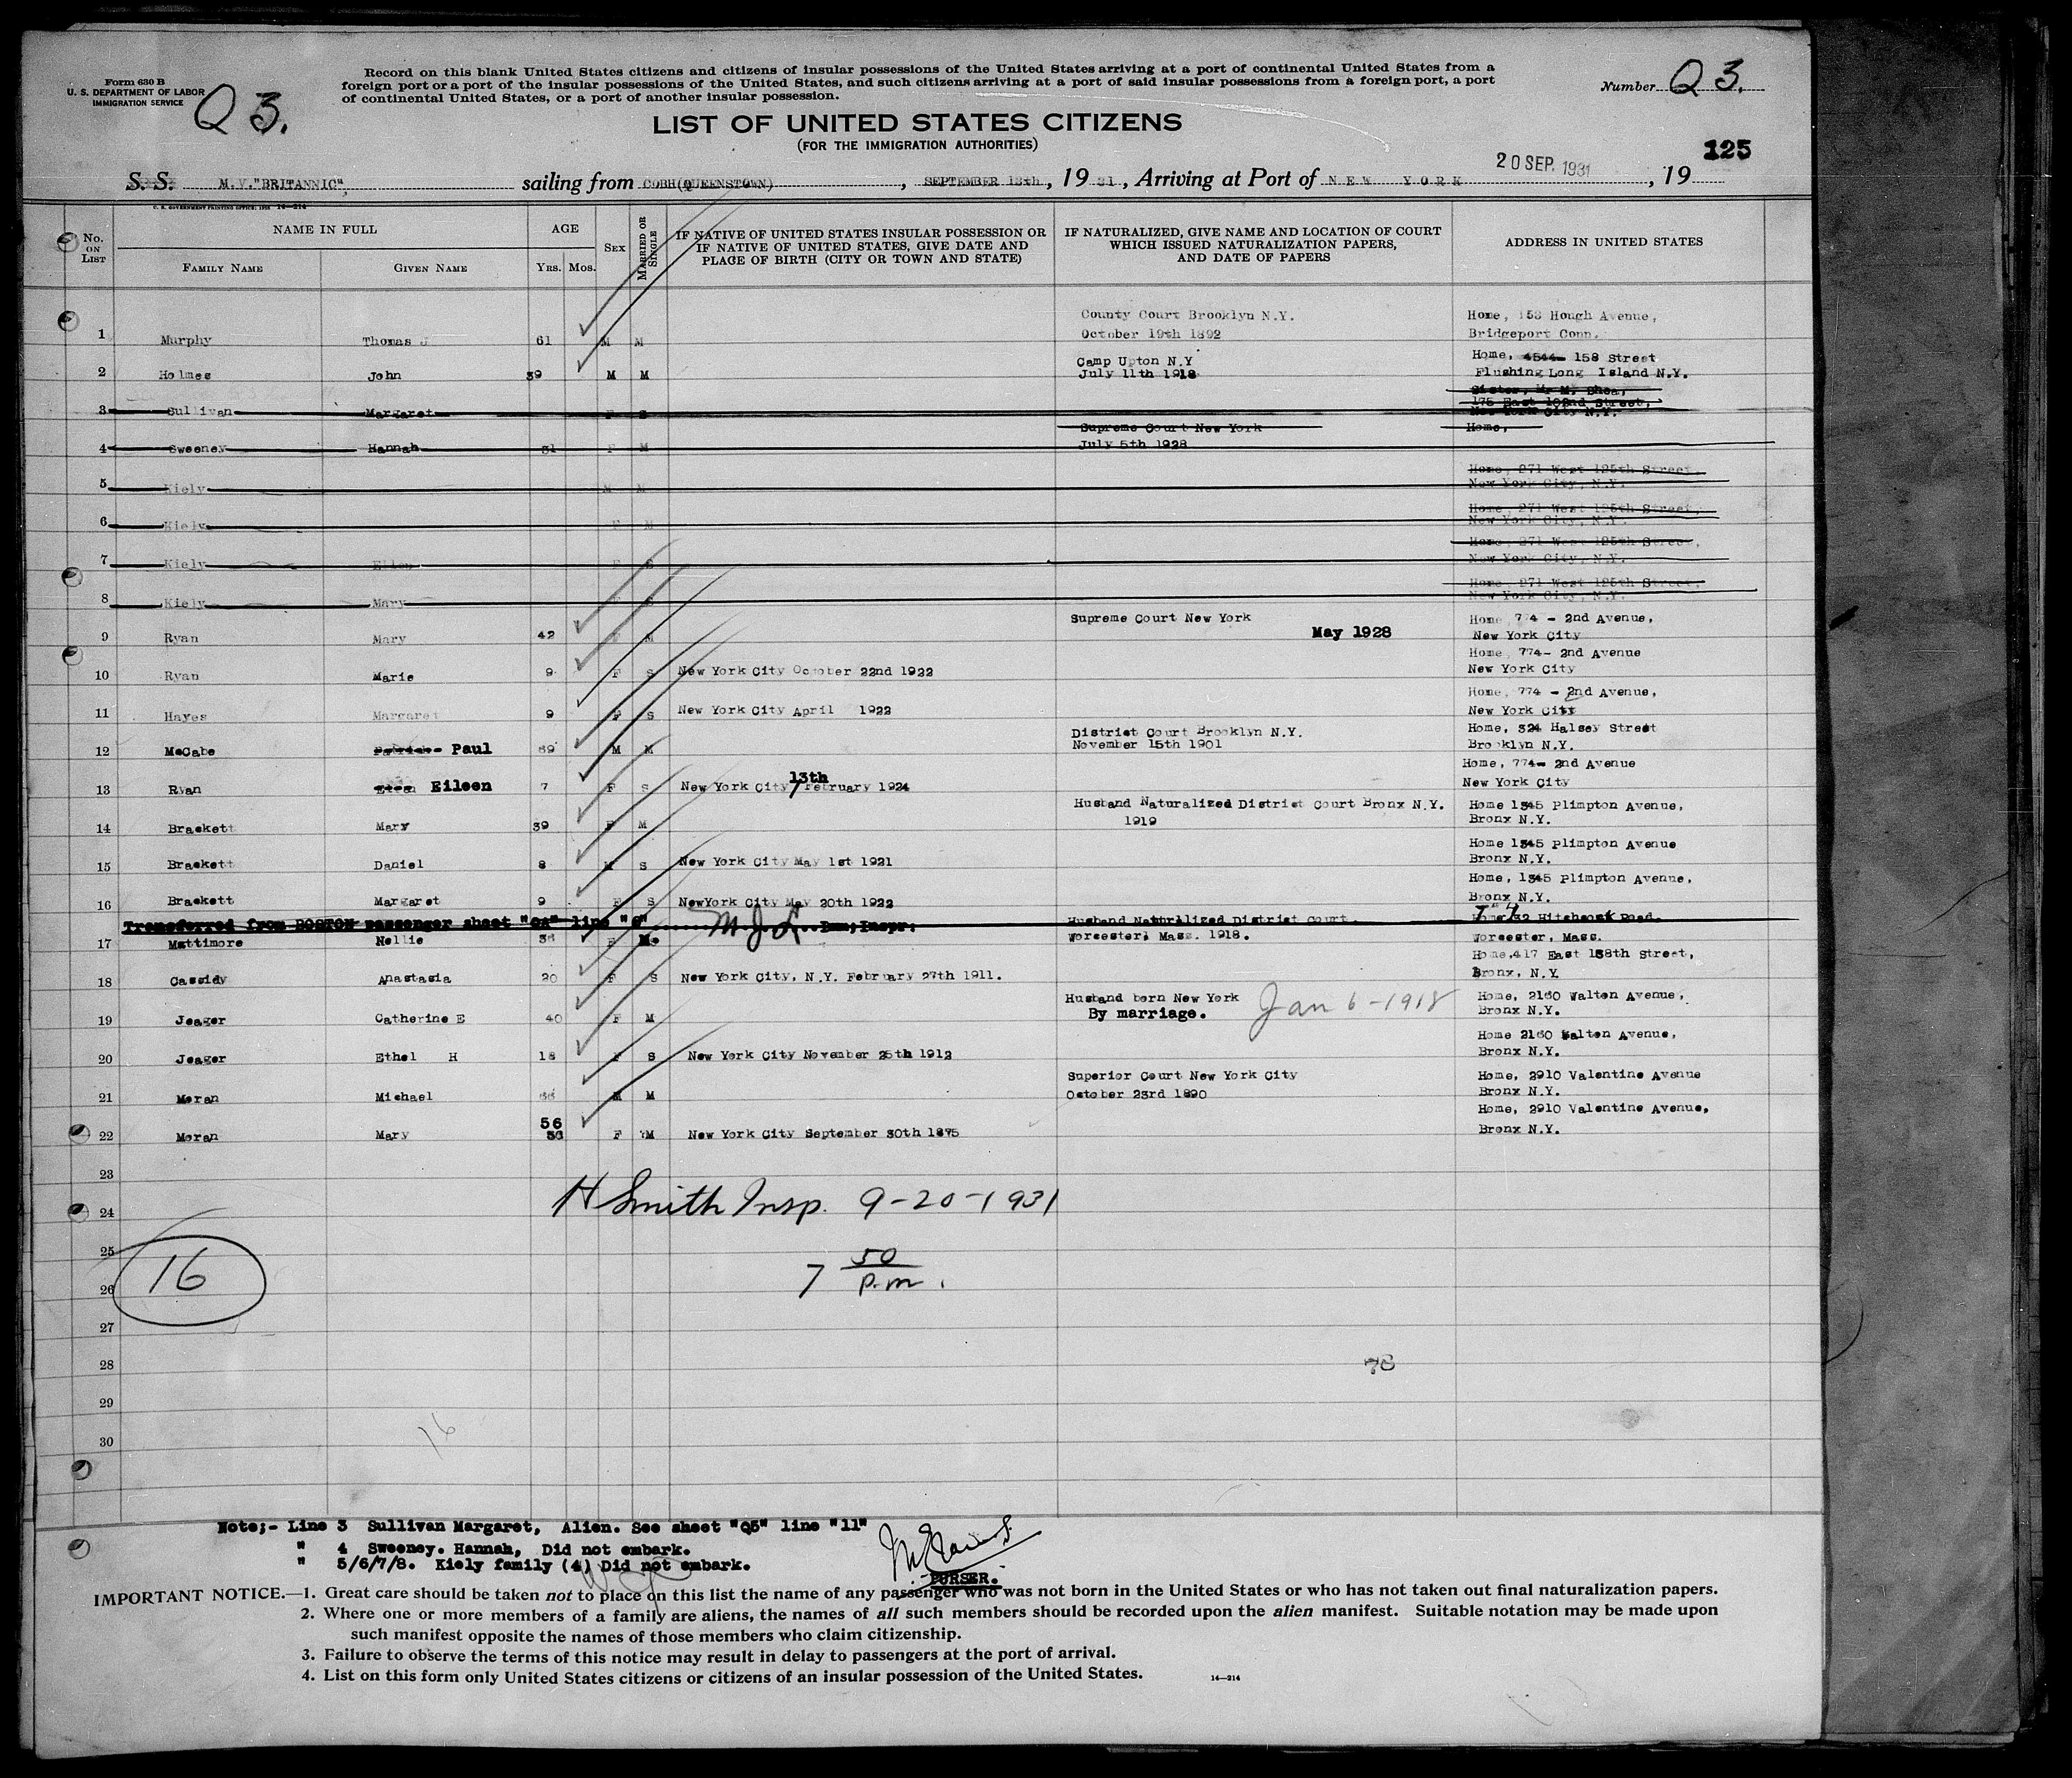 Form 630 B
U. S. DEPARTMENT OF LABOR
IMMIGRATION SERVICE
Q 3.
Record on this blank United States citizens and citizens of insular possessions of the United States arriving at a port of continental United States from a
foreign port or a port of the insular possessions of the United States, and such citizens arriving at a port of said insular possessions from a foreign port, a port
of continental United States, or a port of another insular possession.
Number Q 3.
LIST OF UNITED STATES CITIZENS
(FOR THE IMMIGRATION AUTHORITIES)
125
S. S. M.V."BRITANNIC", sailing from COBH(QUEENSTOWN) , SEPTEMBER 13th , 19 31 , Arriving at Port of NEW YORK 20 SEP. 1931 , 19
U. S. GOVERNMENT PRINTING OFFICE: 14—214
No. ON LIST
NAME IN FULL
FAMILY NAME GIVEN NAME
AGE
YRS. MOS.
SEX
MARRIED OR SINGLE
IF NATIVE OF UNITED STATES INSULAR POSSESSION OR
IF NATIVE OF UNITED STATES, GIVE DATE AND
PLACE OF BIRTH (CITY OR TOWN AND STATE)
IF NATURALIZED, GIVE NAME AND LOCATION OF COURT
WHICH ISSUED NATURALIZATION PAPERS,
AND DATE OF PAPERS
ADDRESS IN UNITED STATES
County Court Brooklyn N.Y. Home, 153 Hough Avenue,
1 Murphy Thomas J 61 M M October 19th 1892 Bridgeport Conn.
Camp Upton N.Y Home, 4544- 158 Street
2 Holmes John 39 M M July 11th 1918 Flushing Long Island N.Y.
Sister, Mr M. Shea,
175 East 102nd Street,
3 Sullivan Margaret F S New York City N.Y.
Supreme Court New York Home,
4 Sweeney Hannah 31 F M July 5th 1928
Home, 271 West 125th Street,
5 Kiely M M New York City, N.Y.
Home, 271 West 125th Street,
6 Kiely F M New York City, N.Y.
Home, 271 West 125th Street,
7 Kiely Ellen F S New York City, N.Y.
Home, 271 West 125th Street,
8 Kiely Mary F S New York City, N.Y.
Supreme Court New York Home 774 - 2nd Avenue,
9 Ryan Mary 42 F M May 1928 New York City
Home, 774- 2nd Avenue
10 Ryan Marie 9 F S New York City October 22nd 1922 New York City
Home, 774 - 2nd Avenue,
11 Hayes Margaret 9 F S New York City April 1922 New York City
District Court Brooklyn N.Y. Home, 324 Halsey Street
12 McCabe Paul 69 M M November 15th 1901 Brooklyn N.Y.
13th Home, 774- 2nd Avenue
13 Ryan Eileen 7 F S New York City February 1924 New York City
Husband Naturalized District Court Bronx N.Y. Home 1345 Plimpton Avenue,
14 Brackett Mary 39 F M 1919 Bronx N.Y.
Home 1345 Plimpton Avenue
15 Brackett Daniel 8 M S New York City May 1st 1921 Bronx N.Y.
Home, 1345 Plimpton Avenue,
16 Brackett Margaret 9 F S NewYork City May 20th 1922 Bronx N.Y.
Transferred from BOSTON passenger sheet "QA" line "6" Imm;Inspr; Husband Naturalized District Court. Home 32 Hitchcock Road.
17 Mattimore Nellie 36 F M. Worcester, Mass. 1918. Worcester, Mass.
Home.417 East 138th Street,
18 Cassidy Anastasia 20 F S New York City, N.Y. February 27th 1911. Bronx, N.Y
Husband born New York Jan 6-1918 Home, 2160 Walton Avenue,
19 Jeager Catherine E 40 F M By marriage. Bronx N.Y.
Home 2160 Walton Avenue,
20 Jeager Ethel H 18 F S New York City November 25th 1912 Bronx N.Y.
Superior Court New York City Home, 2910 Valentine Avenue
21 Moran Michael 66 M M October 23rd 1890 Bronx N.Y.
56 Home, 2910 Valentine Avenue,
22 Moran Mary 56 F M New York City September 30th 1875 Bronx N.Y.
23
H Smith Insp. 9-20-1931
24
25
7 50 p.m.
16
26
27
28
78
29
16
30
Note;- Line 3 Sullivan Margaret, Alien. See sheet "Q5" line "11"
" 4 Sweeney. Hannah, Did not embark.
" 5/6/7/8. Kiely family (4) Did not embark.
PURSER.
IMPORTANT NOTICE.—1. Great care should be taken not to place on this list the name of any passenger who was not born in the United States or who has not taken out final naturalization papers.
2. Where one or more members of a family are aliens, the names of all such members should be recorded upon the alien manifest. Suitable notation may be made upon
such manifest opposite the names of those members who claim citizenship.
3. Failure to observe the terms of this notice may result in delay to passengers at the port of arrival.
4. List on this form only United States citizens or citizens of an insular possession of the United States.
14—214